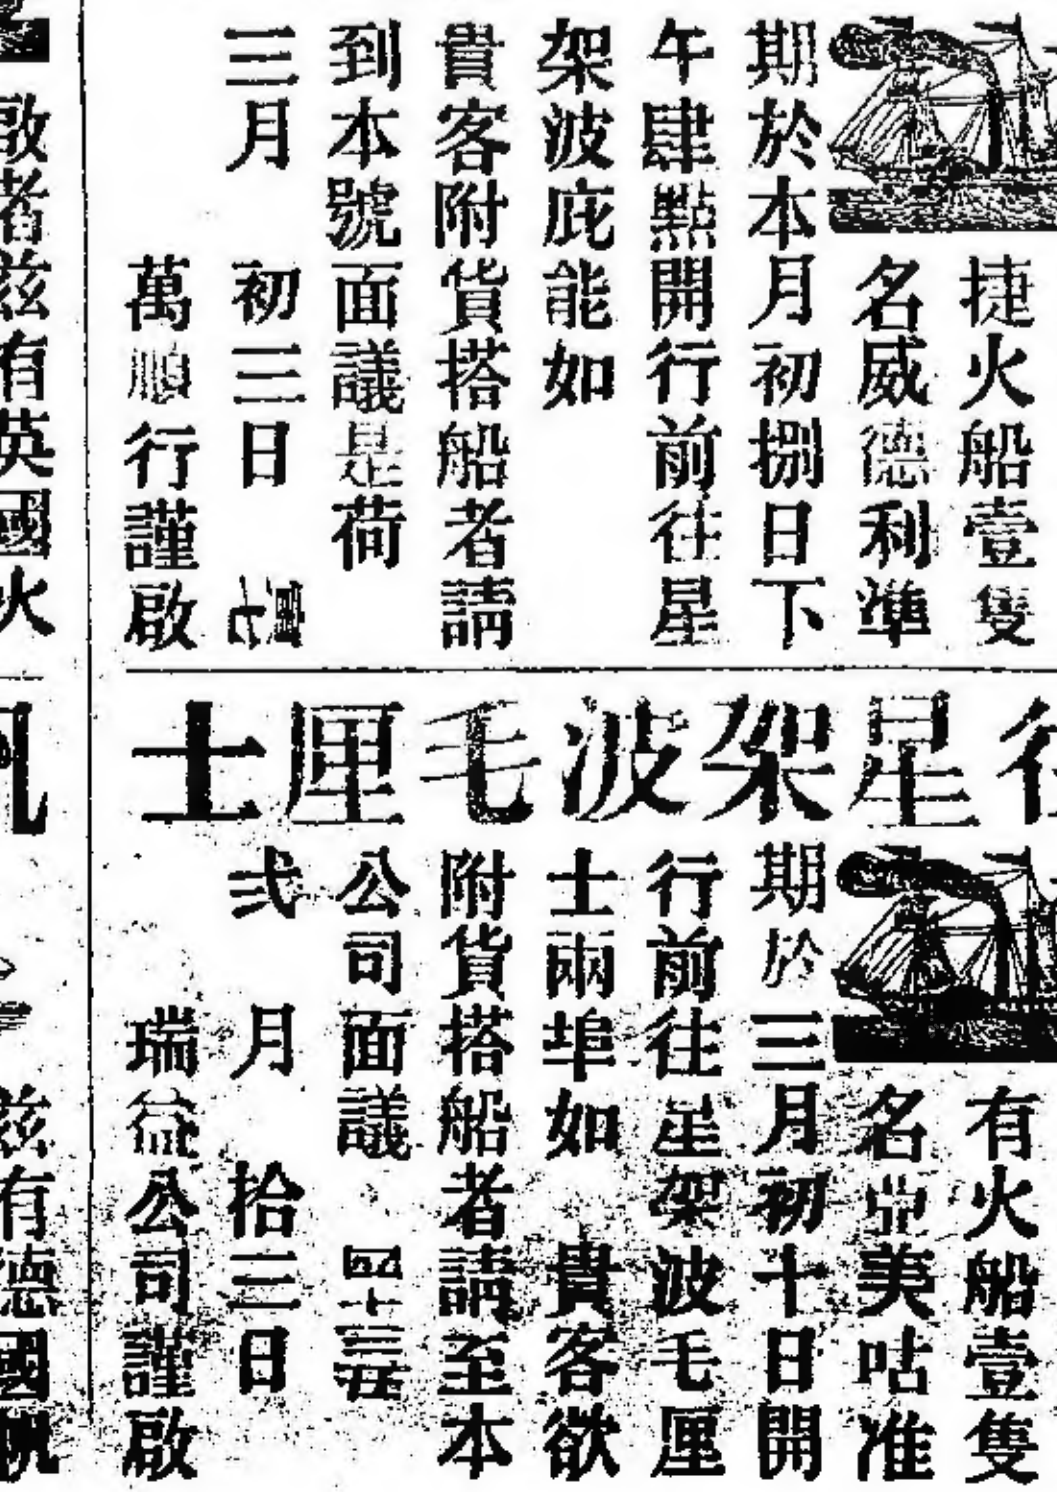 捷火船壹隻
名威德利準
期於本月初捌日下
午肆點開行前往星
架波庇能如
貴客附貨搭船者請
到本號面議是荷
三月初三日
萬順行謹啟
星架波毛厘士
有火船壹隻
名亞美咕准
期於三月初十日開
行前往星架波毛厘
士兩埠如貴客欲
附貨搭船者請至本
公司面議
弍月拾三日
瑞益公司謹啟
啟者茲有英國火
茲有德國帆